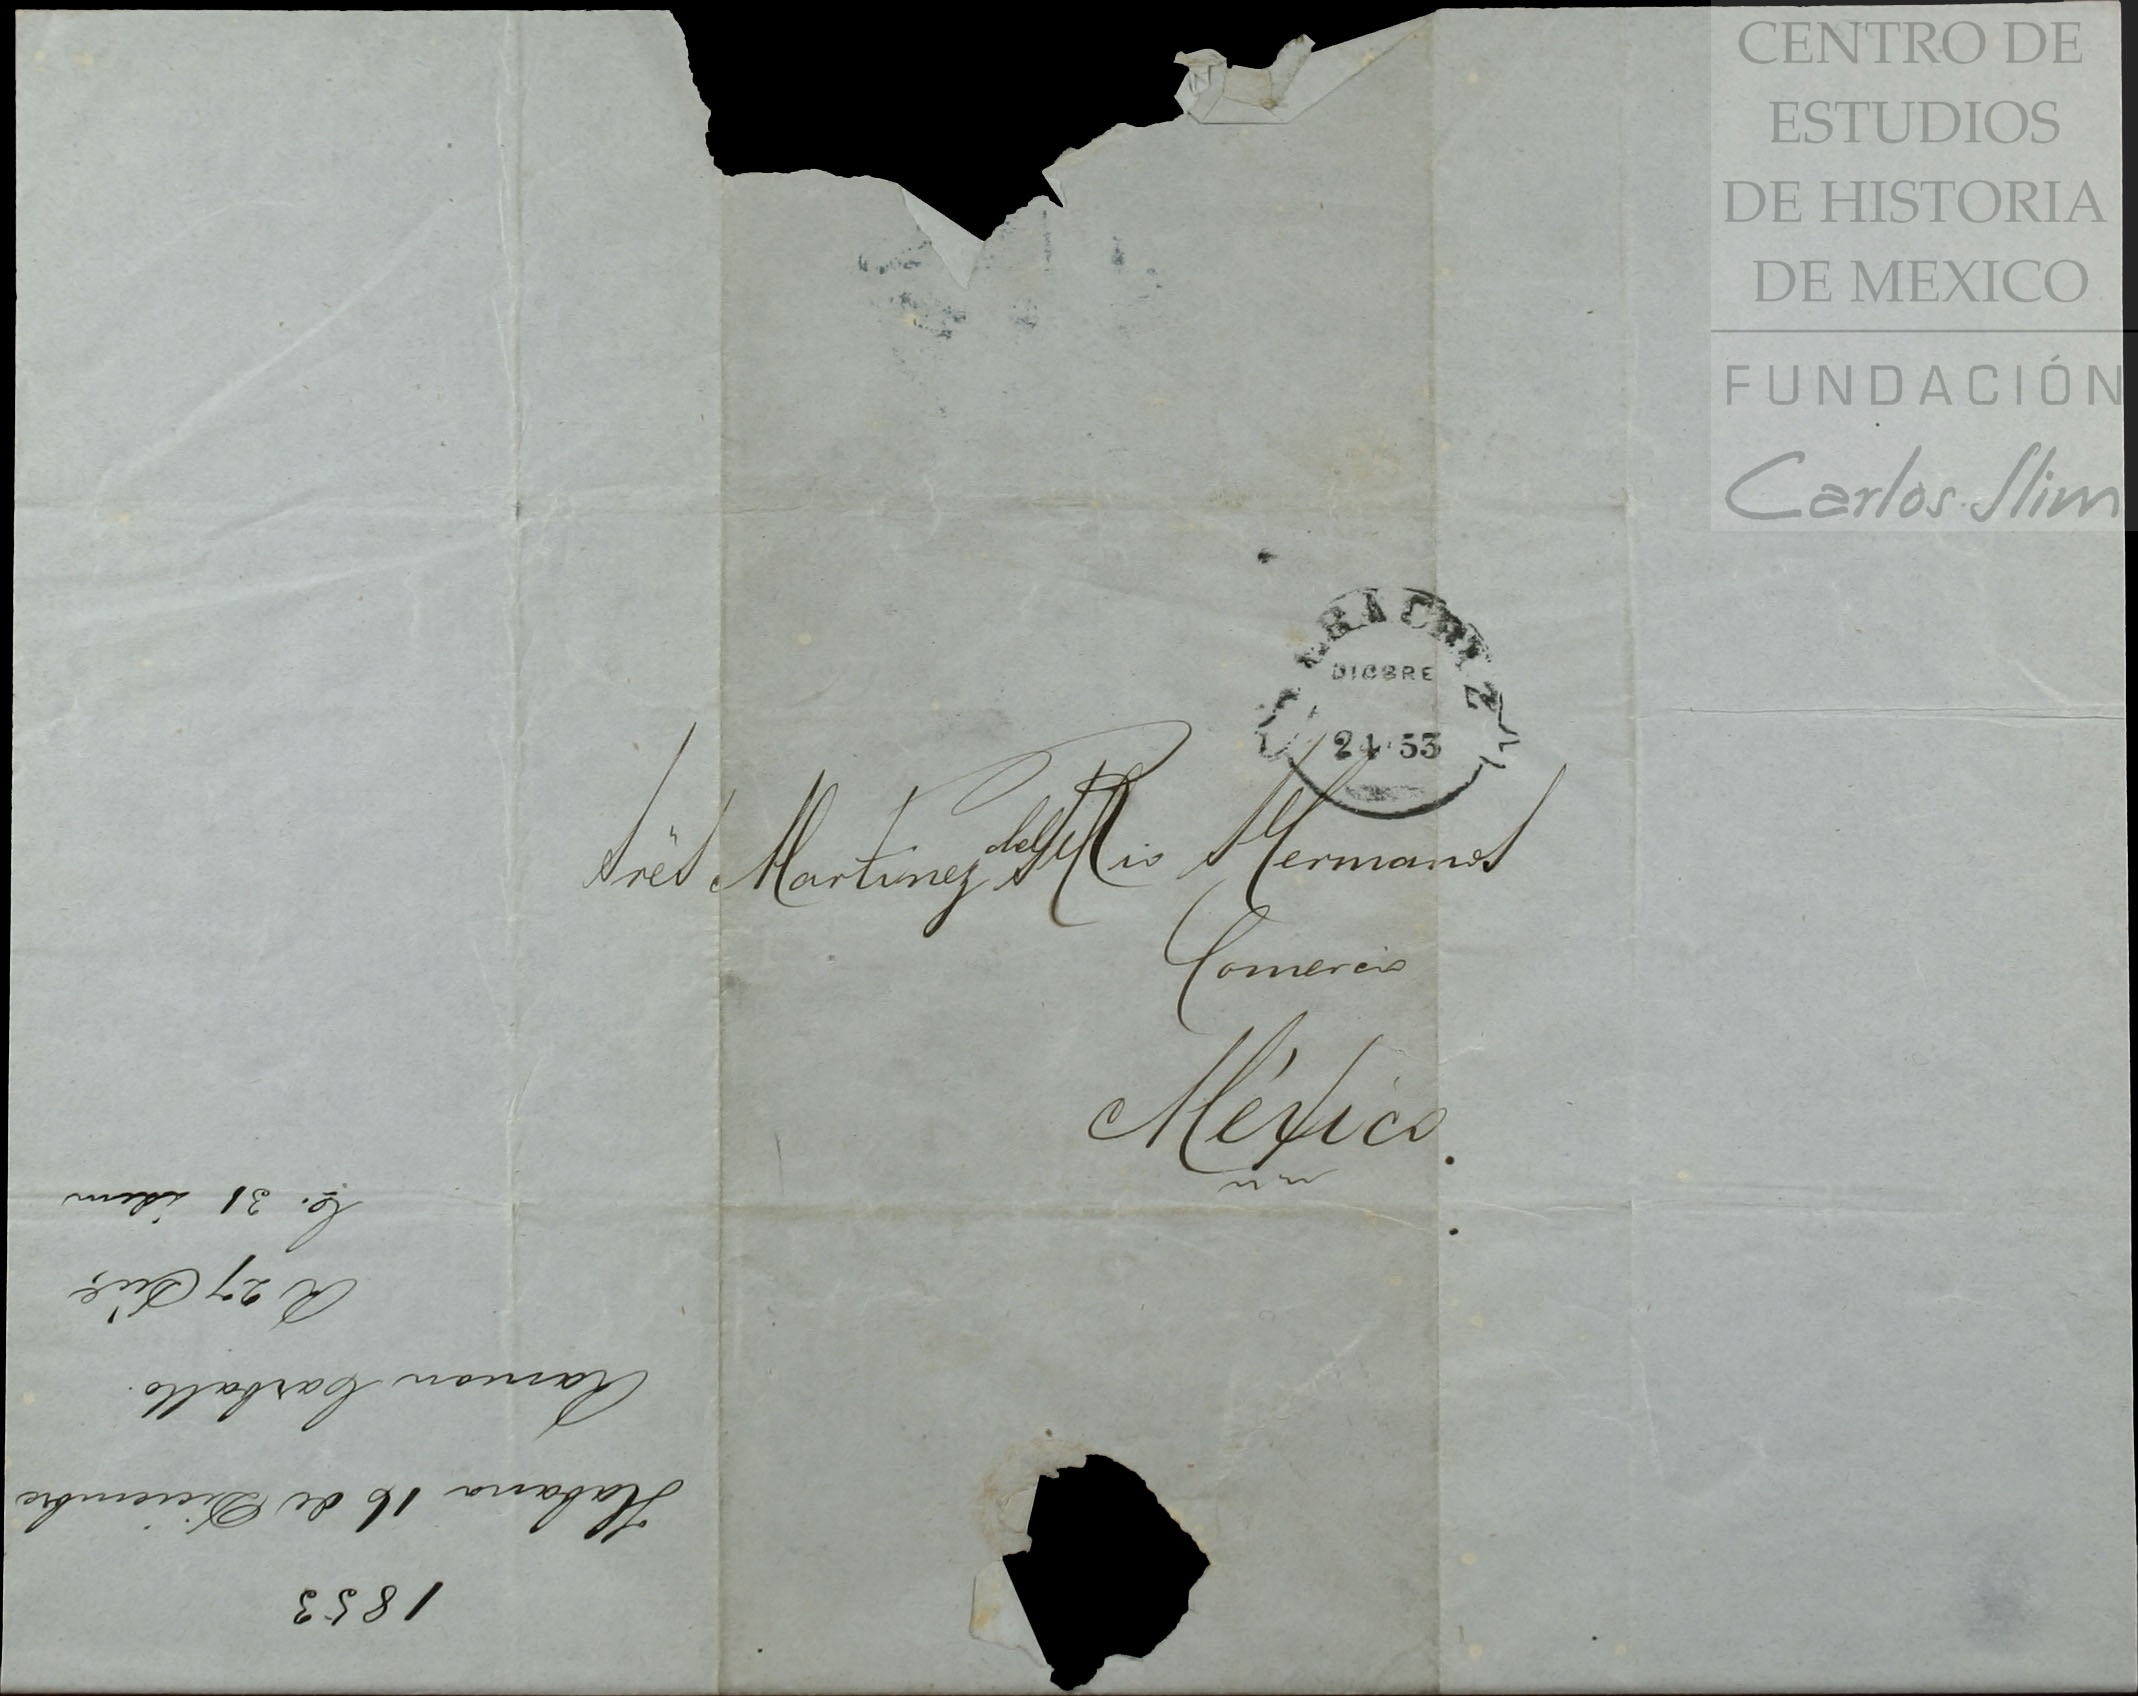 CENTRO DE
ESTUDIOS
DE HISTORIA
DE MEXICO
FUNDACIÓN
Carlos Slim
VERACRUZ
DICBRE
24 53
Sres Martinez del Rio Hermanos
Comercio
México.
1853
Habana 16 de Diciembre
Ramon Carballo.
R 27 Dice
C. 31 idem